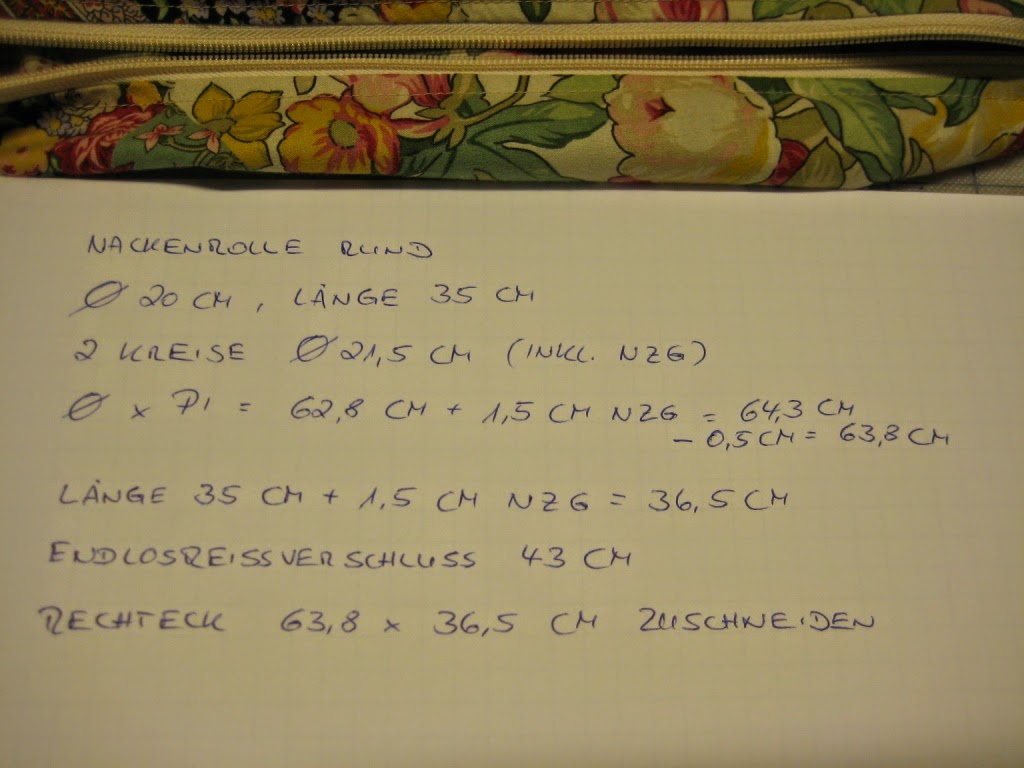 NACKENROLLE RUND
Ø 20 CM, LÄNGE 35 CM
2 KREISE Ø 21,5 CM (INKL. NZG)
Ø x PI = 62,8 CM + 1,5 CM NZG = 64,3 CM
- 0,5 CM = 63,8 CM
LÄNGE 35 CM + 1,5 CM NZG = 36,5 CM
ENDLOSREISSVERSCHLUSS 43 CM
RECHTECK 63,8 x 36,5 CM ZUSCHNEIDEN